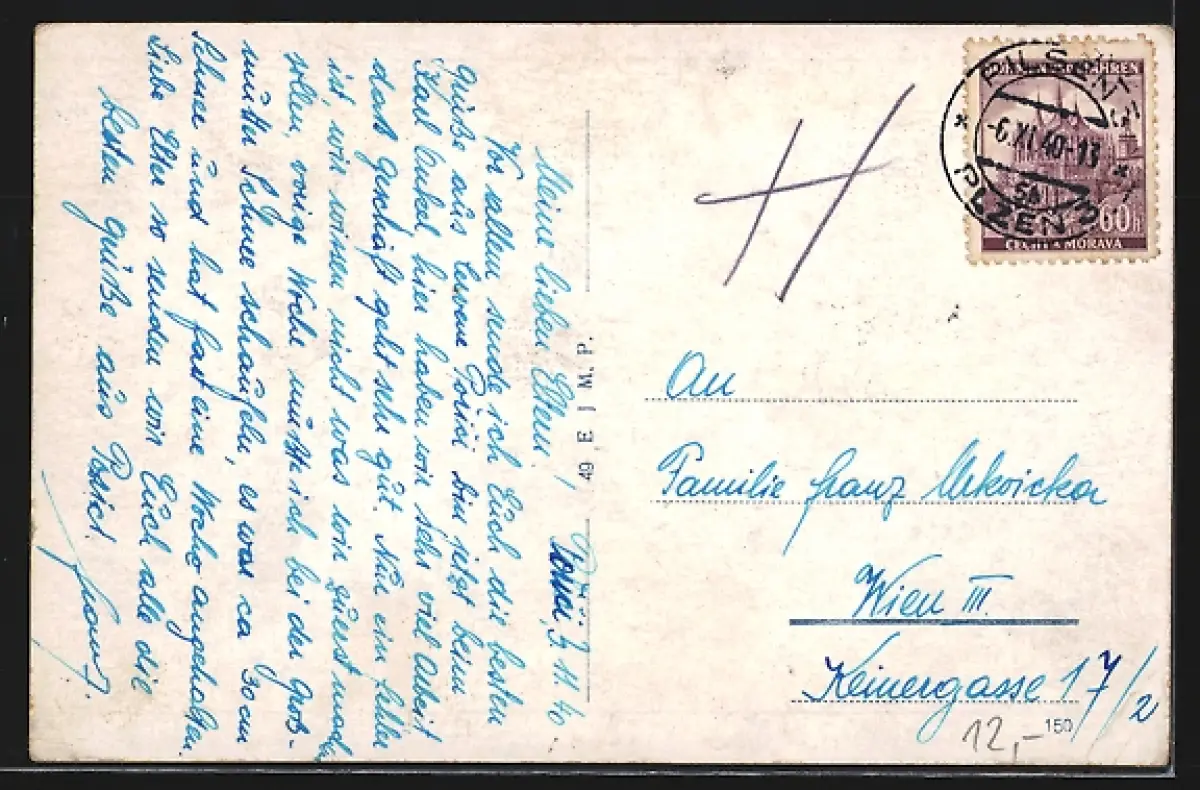 Meine lieben Eltern!
3. 11. 40
Vor allem sende ich Euch die besten
Grüße aus bin jetzt beim
Karl Onkel, hier haben wir sehr viel Arbeit
das Geschäft geht sehr gut. Nur ein Fehler
ist, wir wissen nicht was wir zuerst machen
sollen, vorige Woche mußte ich bei der Groß-
mutter Schnee schaufeln, es war ca 30 cm
Schnee und hat fast eine Woche angehalten.
Liebe Elter so senden wir Euch alle die
besten Grüße aus
Franz.
49 E J M. P.
BÖHMEN U. MÄHREN
60 h
ČECHY A MORAVA
PILSEN 3
-6.XI.40-13
5a
PLZEŇ 3
H
An
Familie Franz
Wien III.
Keinergasse 17/2
150
12,-